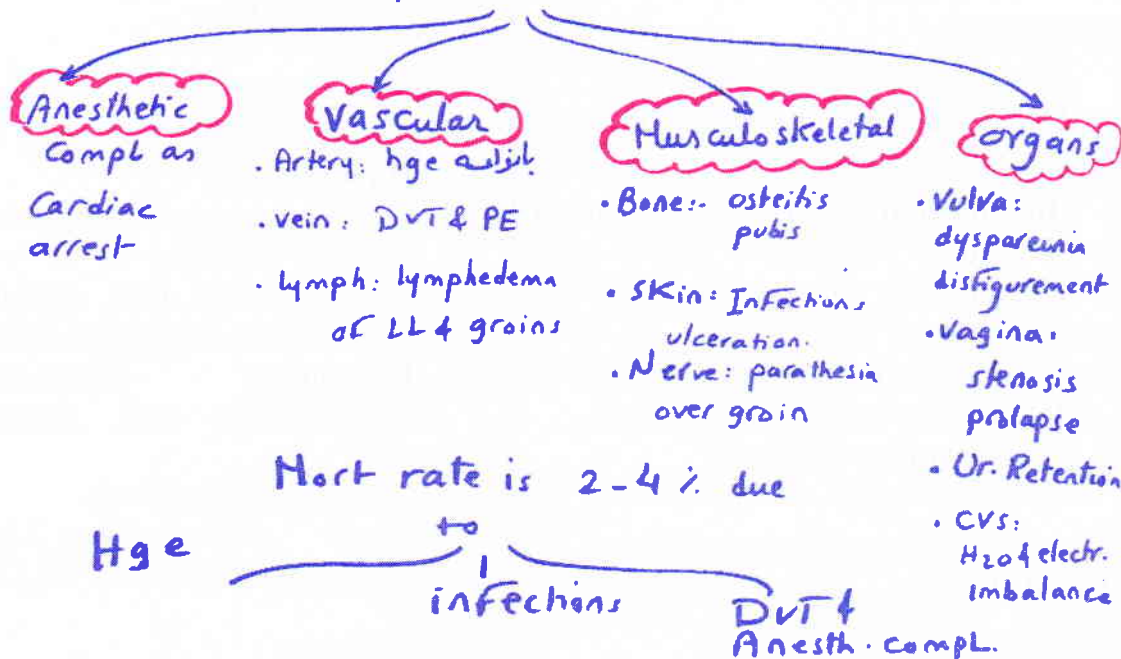 Anesthetic
Compl as
Cardiac
arrest
Vascular
. Artery: hge
. vein: DVT & PE
. lymph: lymphedema
of LL & groins
Musculoskeletal
. Bone:- osteitis
pubis
. SKin: Infections
ulceration.
. Nerve: parathesia
over groin
organs
. Vulva:
dyspareunia
disfigurement
. Vagina:
stenosis
prolapse
. Ur. Retention
. CVS:
H2O & electr.
imbalance
Mort rate is 2-4 % due
to
Hge
infections
DVT &
Anesth. compl.